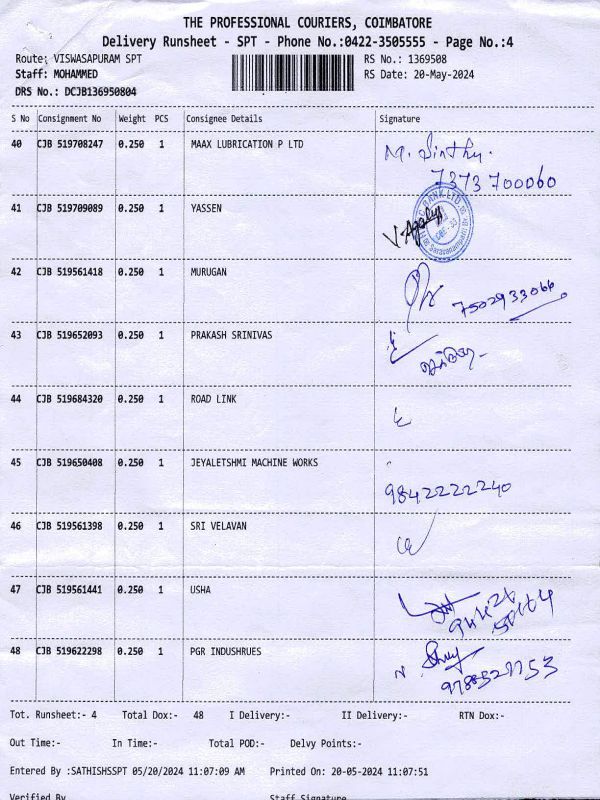 THE PROFESSIONAL COURIERS, COIMBATORE
Delivery Runsheet - SPT - Phone No.:0422-3505555 - Page No.:4
Route: VISWASAPURAM SPT RS No.: 1369508
Staff: MOHAMMED RS Date: 20-May-2024
DRS No.: DCJB136950804
S No Consignment No Weight PCS Consignee Details Signature
40 CJB 519708247 0.250 1 MAAX LUBRICATION P LTD M. Sinthu.
7373 700060
41 CJB 519709089 0.250 1 YASSEN
42 CJB 519561418 0.250 1 MURUGAN
7502933066
43 CJB 519652093 0.250 1 PRAKASH SRINIVAS
44 CJB 519684320 0.250 1 ROAD LINK
45 CJB 519650408 0.250 1 JEYALETSHMI MACHINE WORKS
9842222240
46 CJB 519561398 0.250 1 SRI VELAVAN
47 CJB 519561441 0.250 1 USHA
48 CJB 519622298 0.250 1 PGR INDUSHRUES
Tot. Runsheet:- 4 Total Dox:- 48 I Delivery:- II Delivery:- RTN Dox:-
Out Time:- In Time:- Total POD:- Delvy Points:-
Entered By :SATHISHSSPT 05/20/2024 11:07:09 AM Printed On: 20-05-2024 11:07:51
Verified By Staff Signature